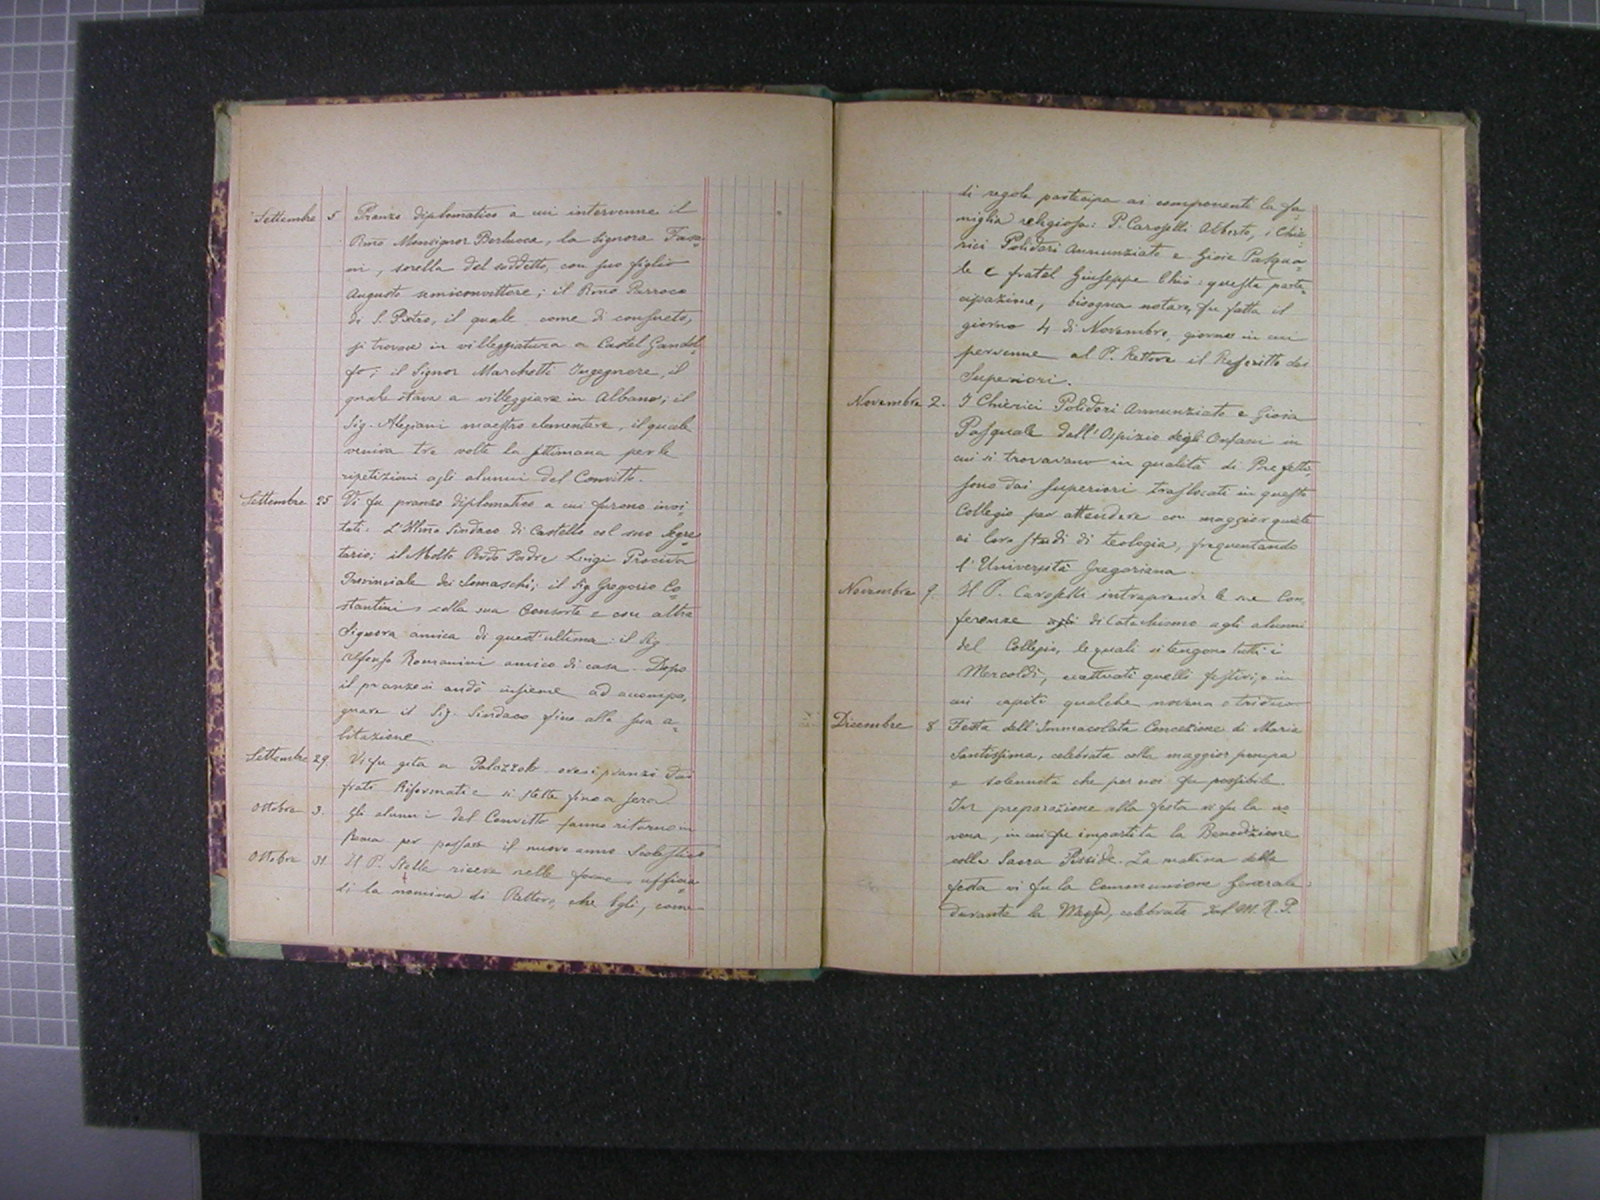 Settembre 5. Pranzo diplomatico a cui intervenne il
Rmo Monsignor Berlucca, la Signora Fasa-
ni, sorella del suddetto, con suo figlio
Augusto semiconvittore; il Rmo Parroco
di S. Pietro, il quale, come di consueto,
si trovava in villeggiatura a Castel Gandol-
fo; il Signor Marchetti Ingegnere, il
quale stava a villeggiare in Albano; il
Sig. Alegiani maestro elementare, il quale
veniva tre volte la settimana per le
ripetizioni agli alunni del Convitto.
Settembre 25. Vi fu pranzo diplomatico a cui furono invi-
tati: L'Illmo Sindaco di Castello col suo Segre-
tario; il Molto Rvdo Padre Luigi Procida
Provinciale dei Somaschi; il Sig. Gregorio Co-
stantini colla sua Consorte e con altra
Signora amica di quest'ultima: il Sig.
Alfonso Romanini amico di casa. Dopo
il pranzo si andò insieme ad accompa-
gnare il Sig. Sindaco fino alla sua a-
bitazione.
Settembre 29. Vi fu gita a Palazzola ove si pranzò dai
frati Riformati e si stette fino a sera.
Ottobre 3. Gli alunni del Convitto fanno ritorno in
Roma per passare il nuovo anno Scolastico
Ottobre 31. Il P. Stella riceve nelle forme uffica-
li la nomina di Rettore, che Egli, come
di regola partecipa ai componenti la fa-
miglia religiosa: P. Caroselli Alberto, i Chie-
rici Polidori Annunziato e Gioia Pasqua-
le e fratel Giuseppe Chiò: questa parte-
cipazione, bisogna notare, fu fatta il
giorno 4 di Novembre, giorno in cui
pervenne al P. Rettore il Rescritto dei
Superiori.
Novembre 2. I Chierici Polidori Annunziato e Gioia
Pasquale dall'Ospizio degli Orfani in
cui si trovavano in qualità di Prefetti
sono dai Superiori traslocati in questo
Collegio per attendere con maggior quiete
ai loro studi di teologia, frequentando
l'Università Gregoriana.
Novembre 9. Il P. Caroselli intraprende le sue Con-
ferenze di Catechismo agli alunni
del Collegio, le quali si tengono tutti i
Mercoldì, eccettuati quelli festivi, o in
cui capiti qualche novena o triduo
Dicembre 8 Festa dell'Immacolata Concezione di Maria
Santissima, celebrata colla maggior pompa
e solennità che per noi fu possibile.
In preparazione alla festa vi fu la no
vena, in cui fu impartita la Benedizione
colla Sacra Pisside. La mattina della
festa vi fu la Comunione Generale
durante la Messa, celebrata dal M. R. P.